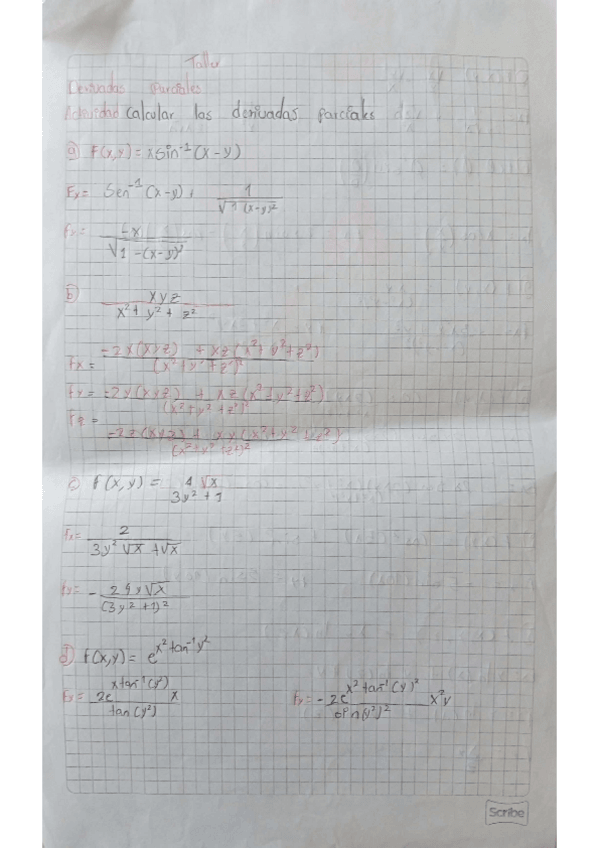 Taller
Derivadas Parciales
Actividad Calcular las derivadas parciales
a) f(x,y) = x sin⁻¹(x-y)
Fx = Sen⁻¹(x-y) + 1/√1-(x-y)²
Fy = -x/√1-(x-y)²
b) xyz/x²+y²+z²
Fx = -2x(xyz) + xz(x²+y²+z²)/(x²+y²+z²)²
Fy = -2y(xyz) + xz(x²+y²+z²)/(x²+y²+z²)²
Fz = -2z(xyz) + xy(x²+y²+z²)/(x²+y²+z²)²
c) f(x,y) = 4√x/3y²+1
Fx = 2/3y²√x+√x
Fy = - 24y√x/(3y²+1)²
d) f(x,y) = e^x² tan⁻¹y²
Fx = 2e^x tan⁻¹(y²) x/tan(y²)
Fy = -2e^x² tan⁻¹(y)² x²y/sin(y²)²
Scribe